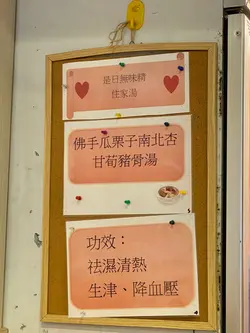 是日無味精
住家湯
佛手瓜栗子南北杏
甘荀豬骨湯
功效：
祛濕清熱
生津、降血壓